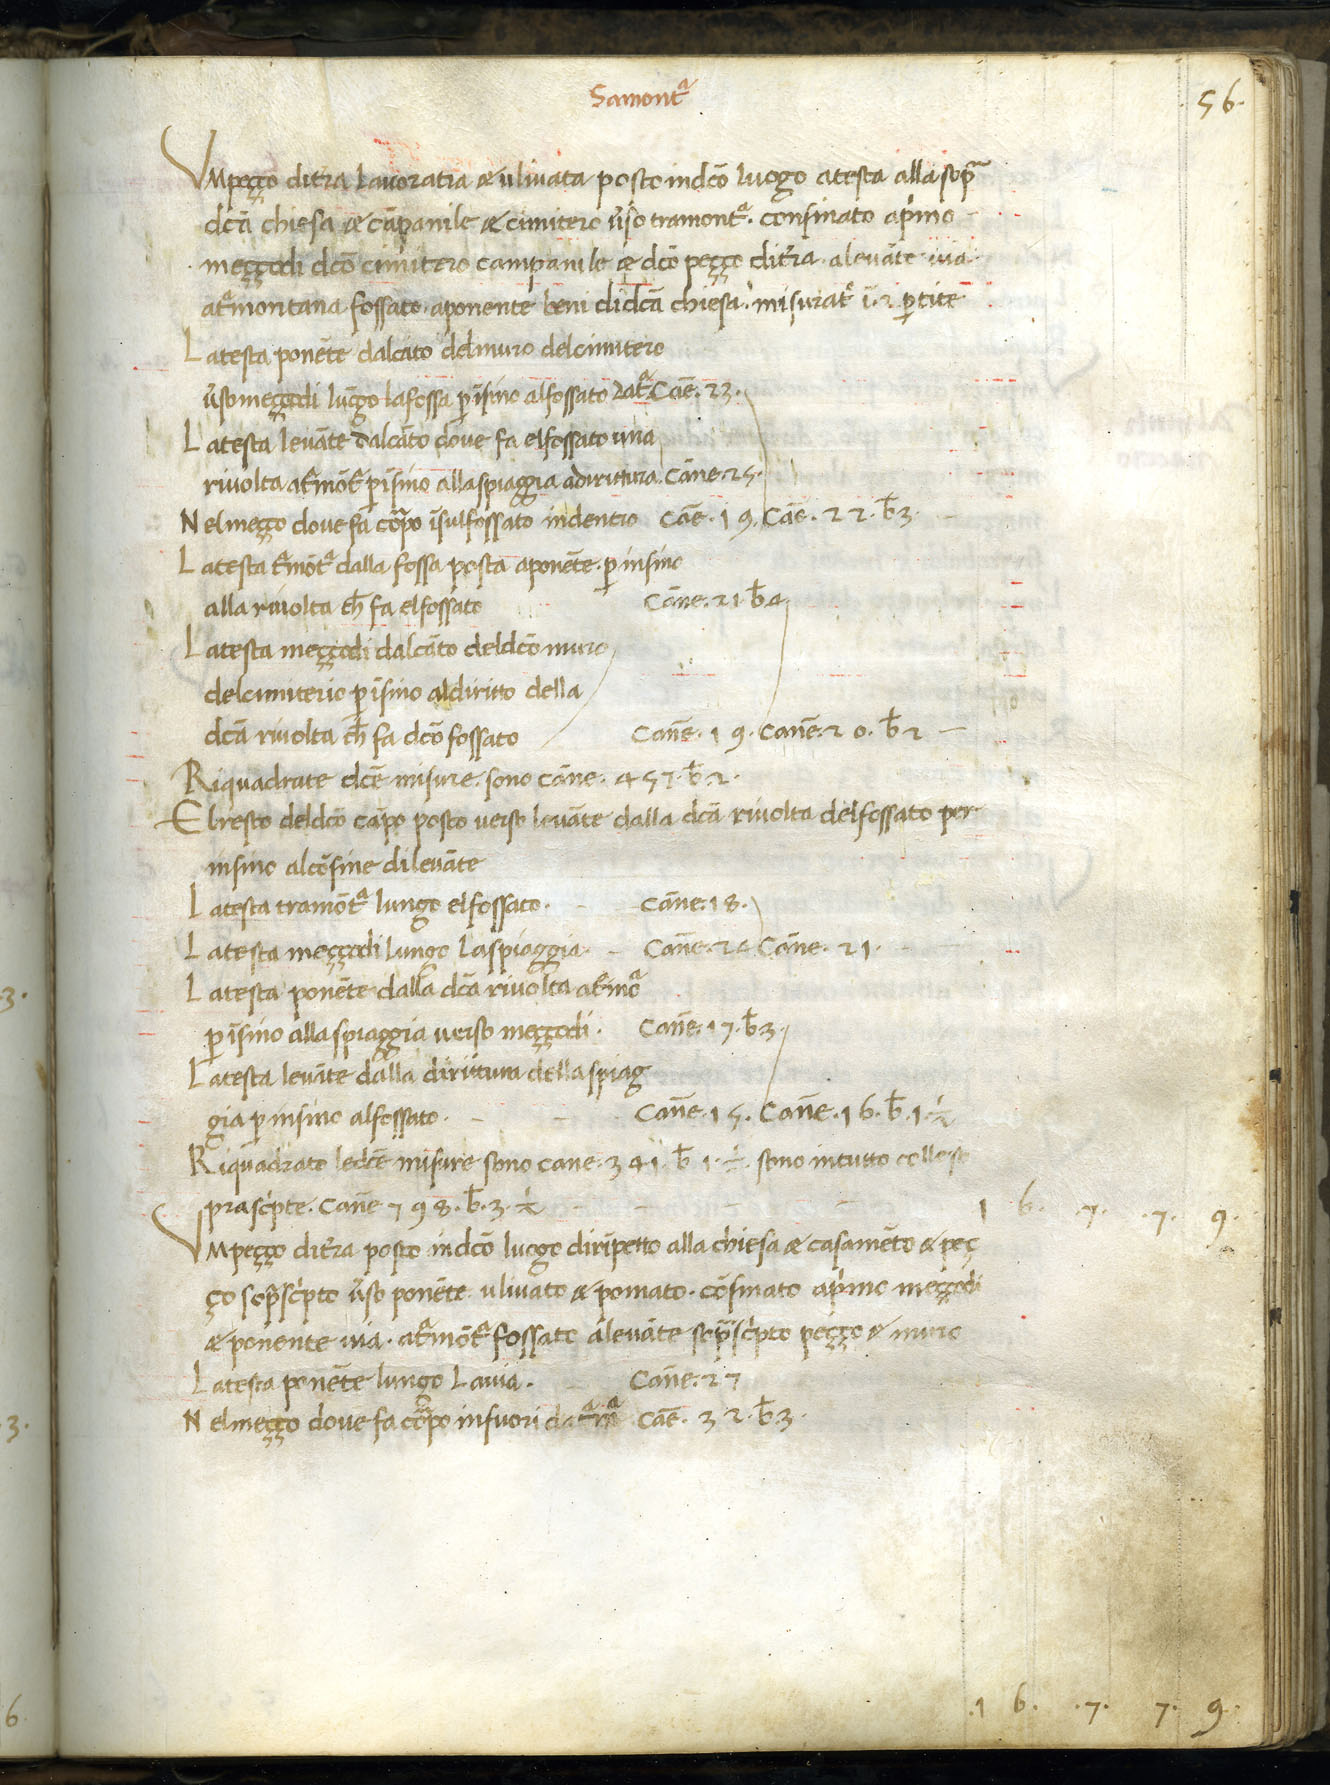 Samontᵃ
56.
VMpeçço ditr̄a lauoratia & vliuata posto indc̄o luogo atesta alla sop̄ᵃ
dc̄a chiesa & cāpanile & cimitero ṽso tramontᵃ. confinato ap̍mo
meççodi dc̄o cimitero campanile & dc̄o peçço ditr̄a. aleuāte uia.
atᵃmontana fossato. aponente beni didc̄a chiesa. misuratᵃ ī. 2. ꝑtite
Latesta ponēte dalcāto delmuro delcimitero
ṽsomeççodi lūgo lafossa ꝑīsino alfossato Cāe. 23.
Latesta leuāte dalcāto doue fa elfossato una
riuolta atᵃmōtᵃ ꝑīsino allaspiaggia adirittura. Cāne. 25.
Nelmeçço doue fa cōpo īsulfossato indentro Cāe. 19. Cāe. 22. b̄3.
Latesta tᵃmōtᵃ dalla fossa posta aponēte. ꝑ insino
alla riuolta ch̄ fa elfossato Cāne. 21. b̄4
Latesta meççodi dalcāto deldc̄o muro
delcimiterio ꝑīsino aldiritto della
dc̄a riuolta ch̄ fa dc̄o fossato Can̄e. 19. Can̄e. 20. b̄2
Riquadrate dc̄e misure. sono cāne. 457. b̄. 2.
Elresto deldc̄o cāpo posto verso leuāte dalla dc̄a riuolta delfossato per
insino alcōfine dileuāte
Latesta tramōtᵃ lungo elfossato. Cāne. 18.
Latesta meççodi lungo laspiaggia. Can̄e. 24 Cāne. 21.
Latesta ponēte dalla dc̄a riuolta atᵃmōᵃ
ꝑīsino allaspiaggia verso meççodi. Can̄e. 17. b̄3
Latesta leuāte dalla dirittura dellaspiag
gia ꝑ insino alfossato. Can̄e. 15. Can̄e. 16. b̄. 1. ½
Riquadrato ledc̄e misure sono cane. 341. b̄ 1. ½. sono intutto colleso
prasc̍pte. Can̄e 798. b̄. 3. ½ 1 6. .7. .7. 9.
VMpeçço ditr̄a posto indc̄o luogo dirīpetto alla chiesa & casamēto & peç
ço sop̄sc̍pto ṽso ponēte. vliuato & pomato. cōfinato ap̍mo meççodi
& ponente uia. atᵃmōtᵃ fossato aleuāte sop̄ᵃsc̍pto peçço & muro
Latesta ponēte lungo Lauia. Cāne. 27
Nelmeçço doue fa cōpo infuori Cāe. 32. b̄3.
.1 6. .7. 7. 9.